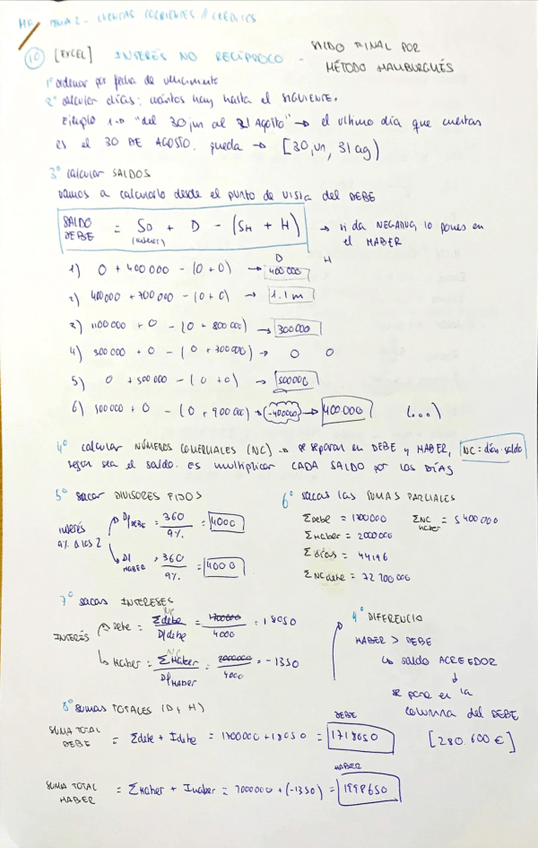 MF - TEMA 2 - CUENTAS CORRIENTES / CREDITOS
10 [EXCEL] INTERÉS NO RECÍPROCO - SALDO FINAL POR
MÉTODO HAMBURGUÉS
1º ordenar por fecha de vencimiento
2º calcular días: cuántos hay hasta el SIGUIENTE.
Ejemplo 1 → "del 30 jun al 31 Agosto" → el último día que cuentas
es el 30 DE AGOSTO. queda → [30 jun, 31 ag)
3º calcular SALDOS
vamos a calcularlo desde el punto de vista del DEBE
SALDO DEBE = SD + D - (SH + H) → si da NEGATIVO, lo pones en
(anterior) el HABER
D H
1) 0 + 400000 - (0 + 0) → 400000
2) 400000 + 700000 - (0 + 0) → 1.1 m
3) 1100000 + 0 - (0 + 800000) → 300000
4) 300000 + 0 - (0 + 300000) → 0 0
5) 0 + 500000 - (0 + 0) → 500000
6) 500000 + 0 - (0 + 900000) → (-400000) → 400000 (...)
4º calcular NÚMEROS COMERCIALES (NC) → se separan en DEBE y HABER, NC = días · saldo
según sea el saldo. es multiplicar CADA SALDO por los DÍAS
5º sacar DIVISORES FIJOS
INTERÉS 9% A los 2
Df DEBE = 360 / 9% = 4000
Df HABER = 360 / 9% = 4000
6º sacas las SUMAS PARCIALES
Σ debe = 1700000 Σ NC haber = 5 400 000
Σ Haber = 2000000
Σ días = 44196
Σ NC debe = 72 200 000
7º sacas INTERESES
INTERÉS
Debe = Σ debe NC / Df debe = 1700000 / 4000 = 18050
Haber = Σ Haber NC / Df HABER = 2000000 / 4000 = -1350
9º DIFERENCIA
HABER > DEBE
↳ saldo ACREEDOR
↓
se pone en la
columna del DEBE
[280.600 €]
8º SUMAS TOTALES (D y H)
DEBE
SUMA TOTAL DEBE = Σ debe + I debe = 1700000 + 18050 = 1718050
HABER
SUMA TOTAL HABER = Σ Haber + I haber = 2000000 + (-1350) = 1998650